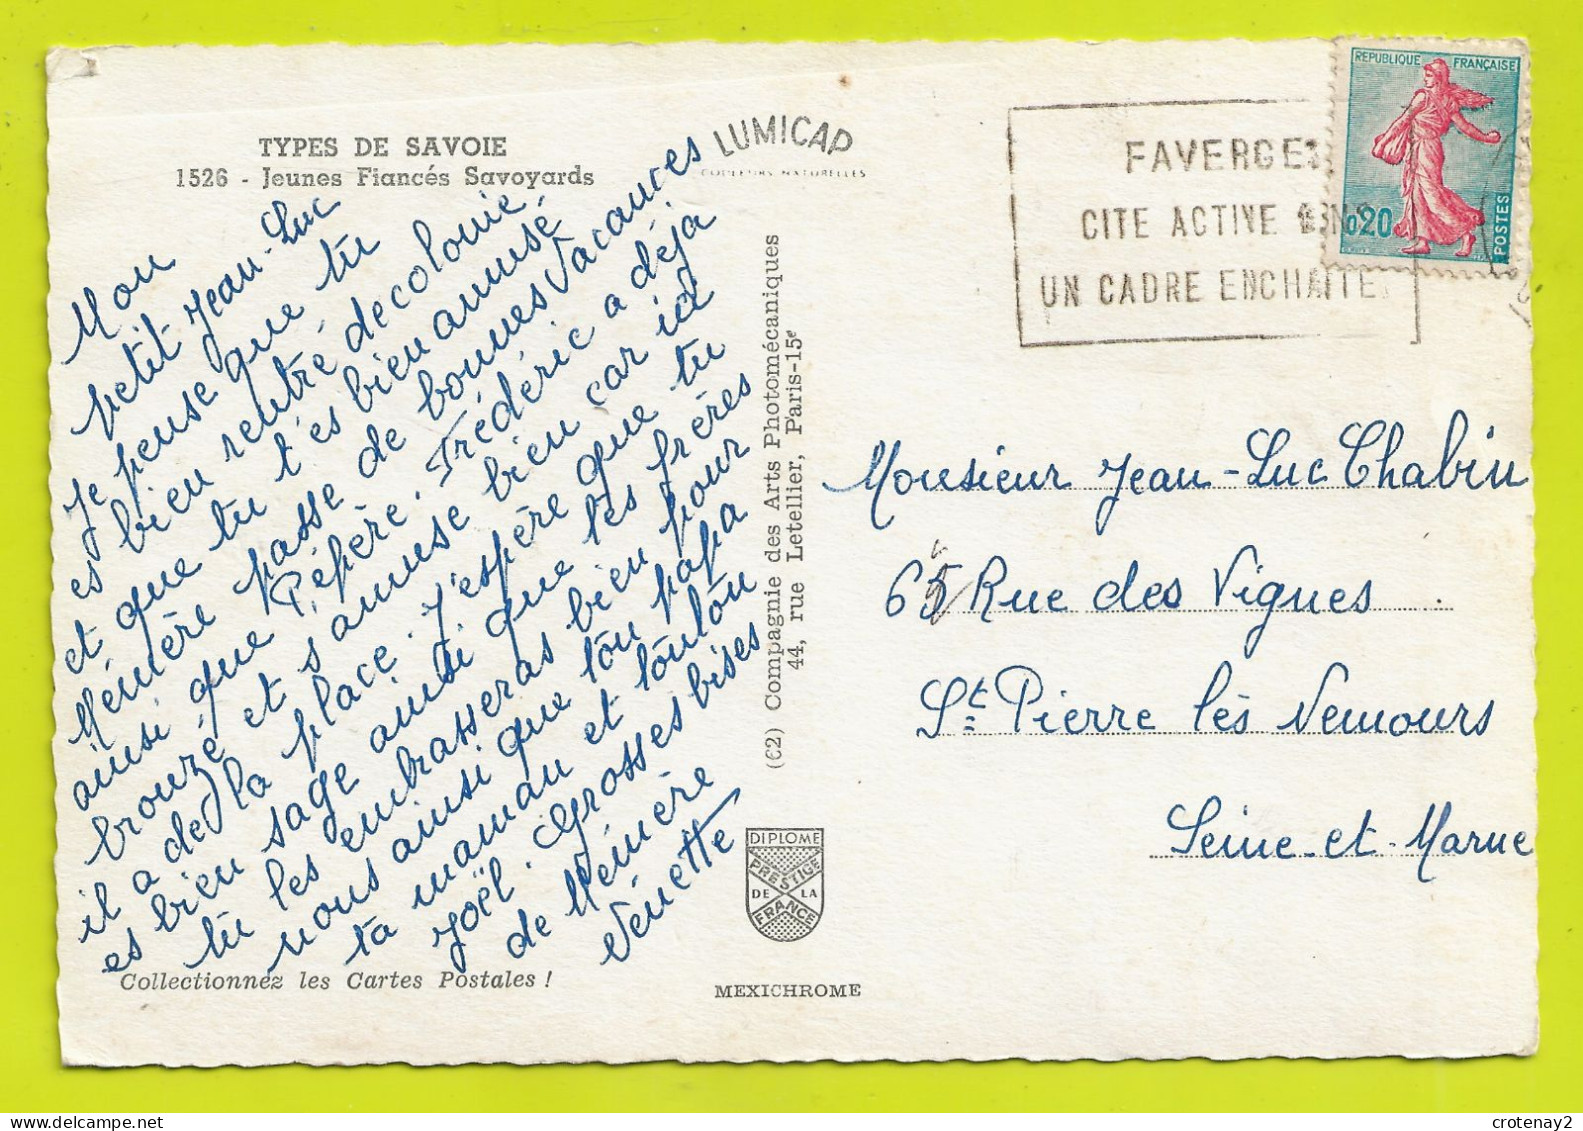 TYPES DE SAVOIE
1526 - Jeunes Fiancés Savoyards
LUMICAP
COULEURS NATURELLES
Mon
petit Jean-Luc
Je pense que tu
es bien rentré de colonie
et que tu t'es bien amusé.
Mémère passe de bonnes vacances
ainsi que Pépère. Frédéric a déjà
bronzé et s'amuse bien car ici
il a de la place. J'espère que tu
es bien sage ainsi que tes frères
tu les embrasseras bien pour
nous ainsi que ton papa
ta maman et tonton
Joël. Grosses bises
de Mémère
Nénette
Collectionnez les Cartes Postales !
(C2) Compagnie des Arts Photomécaniques
44, rue Letellier, Paris-15e
DIPLOME
PRESTIGE
DE LA
FRANCE
MEXICHROME
FAVERGES
CITE ACTIVE
UN CADRE ENCHANTE
REPUBLIQUE FRANÇAISE
0,20
POSTES
Monsieur Jean-Luc Chabin
65 Rue des Vignes
St Pierre lès Nemours
Seine-et-Marne
crotenay2